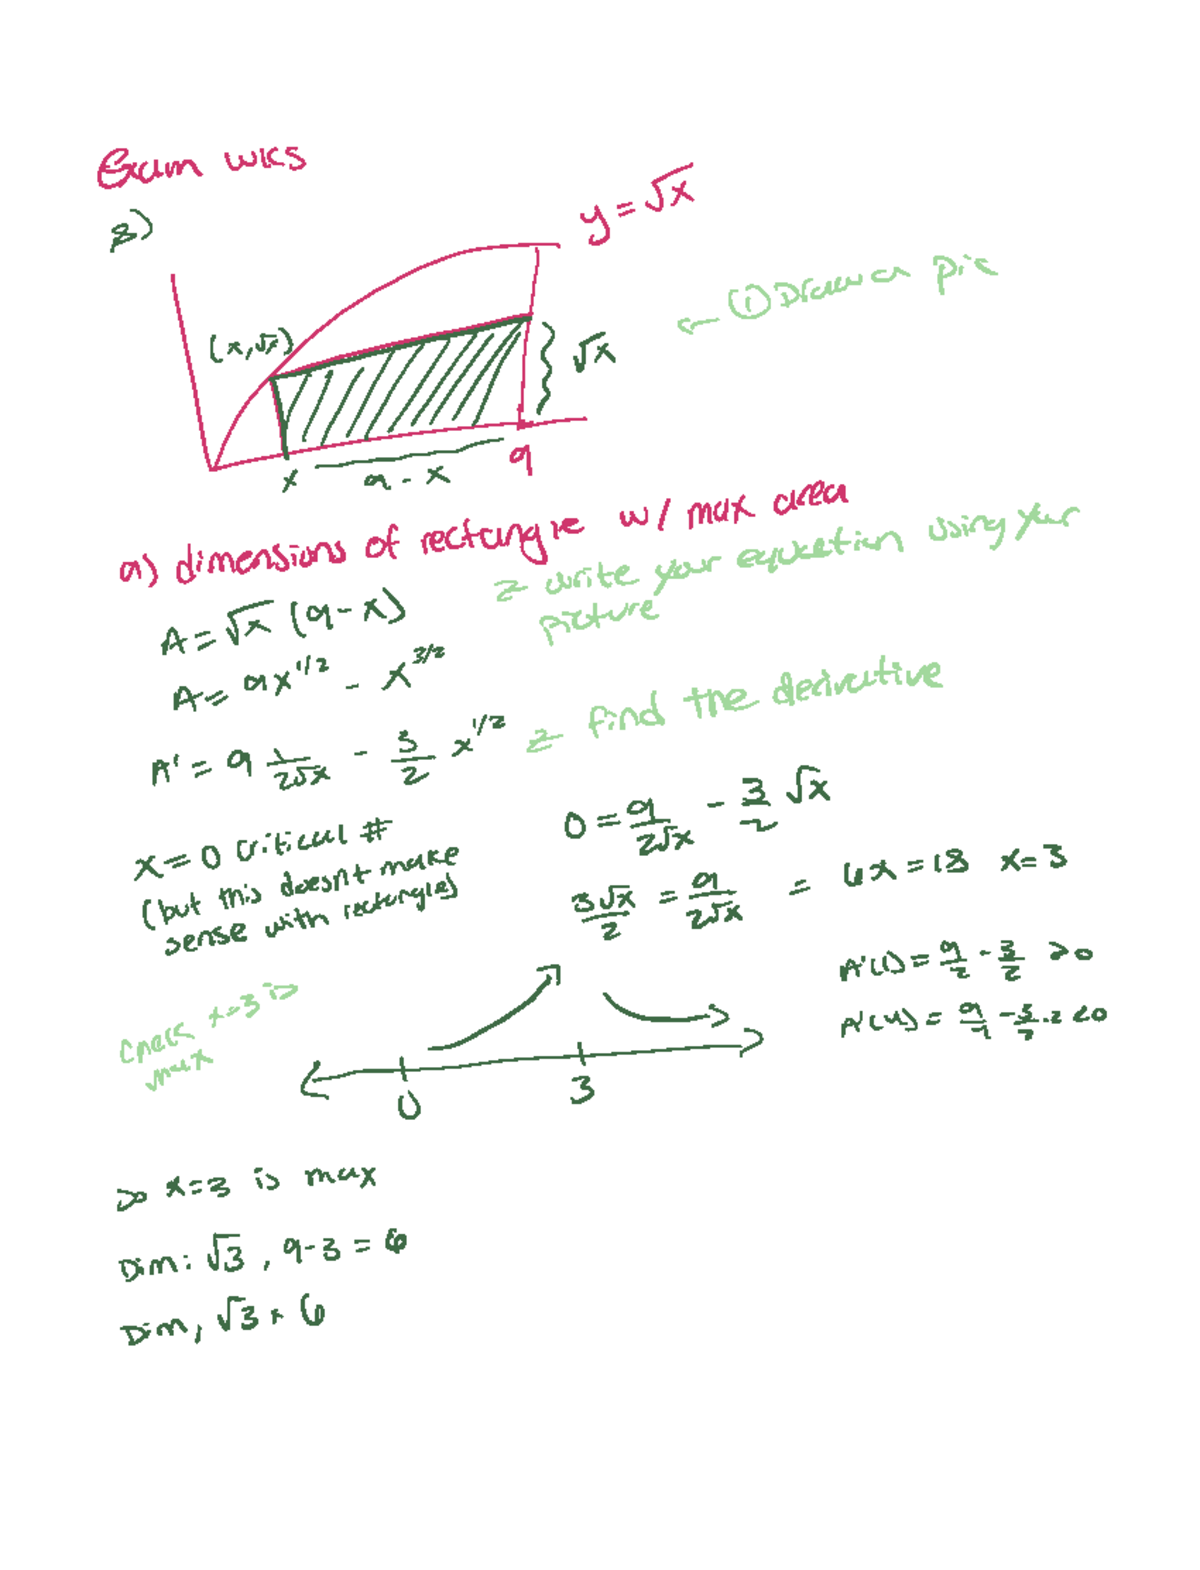 Exam wks
8)
y = √x
← ① Draw a pic
(x, √x)
√x
x
9 - x
9
a) dimensions of rectangle w/ max area
A = √x (9 - x)
2 write your equation using your
picture
A = 9x^1/2 - x^3/2
A' = 9 1/2√x - 3/2 x^1/2
2 find the derivative
x = 0 critical #
(but this doesn't make
sense with rectangle)
0 = 9/2√x - 3/2 √x
3√x/2 = 9/2√x = 6x = 18 x = 3
A'(1) = 9/2 - 3/2 > 0
A'(4) = 9/4 - 3/2 · 2 < 0
Check x = 3 is
max
0 3
So x = 3 is max
Dim: √3, 9 - 3 = 6
Dim, √3 × 6